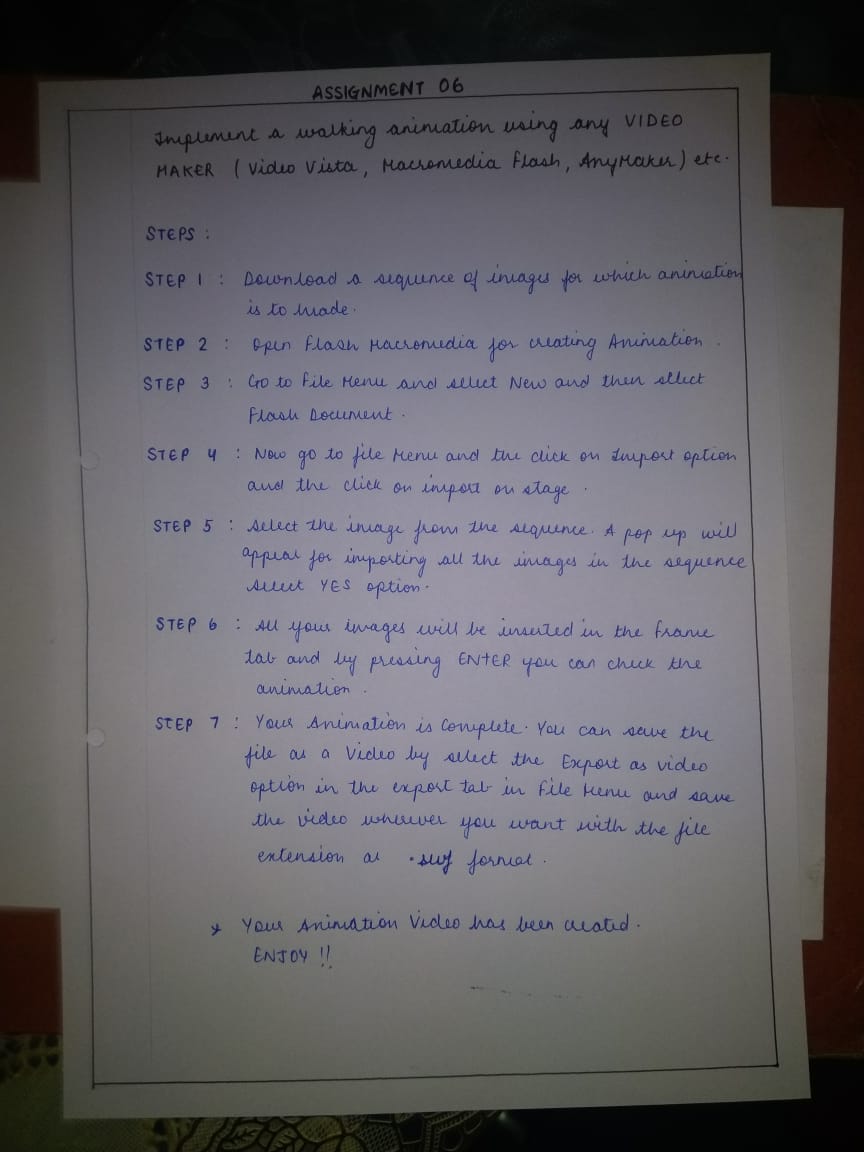 ASSIGNMENT 06
Implement a walking animation using any VIDEO
MAKER (Video Vista, Macromedia Flash, AnyMaker) etc.
STEPS :
STEP 1 : Download a sequence of images for which animation
is to made.
STEP 2 : Open Flash Macromedia for creating Animation.
STEP 3 : Go to File Menu and select New and then select
Flash Document.
STEP 4 : Now go to file Menu and the click on Import option
and the click on import on stage.
STEP 5 : Select the image from the sequence. A pop up will
appear for importing all the images in the sequence
select YES option.
STEP 6 : All your images will be inserted in the Frame
tab and by pressing ENTER you can check the
animation.
STEP 7 : Your Animation is Complete. You can save the
file as a Video by select the Export as video
option in the export tab in File Menu and save
the video wherever you want with the file
extension as .swf format.
* Your Animation Video has been created.
ENJOY !!